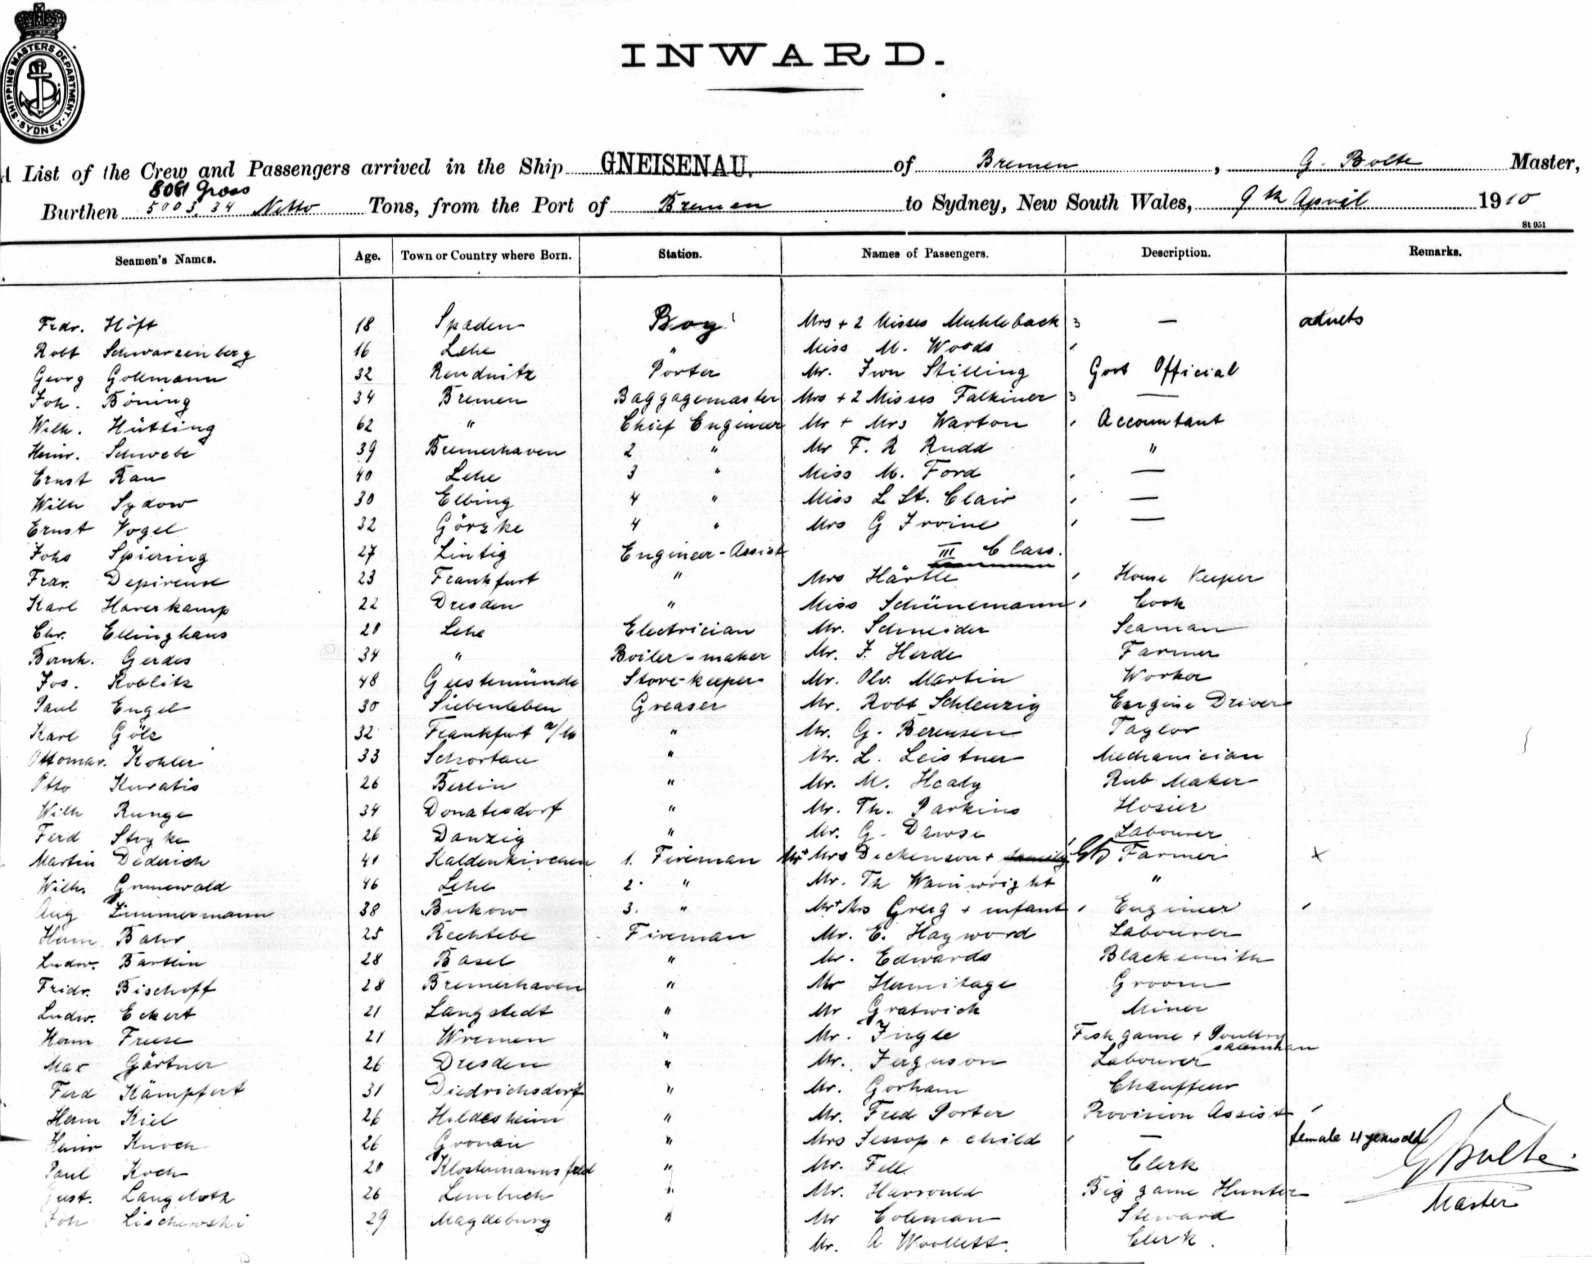 SHIPPING MASTERS DEPARTMENT
SYDNEY
INWARD.
A List of the Crew and Passengers arrived in the Ship GNEISENAU. of Bremen, G. Bolte Master,
8081 Gross
Burthen 5003,34 Netto Tons, from the Port of Bremen to Sydney, New South Wales, 9th April 1910
St 951
Seamen's Names. Age. Town or Country where Born. Station. Names of Passengers. Description. Remarks.
Frdr. Höft 18 Spaden Boy Mrs + 2 Misses Muhleback 3 — adults
Robt Schwarzenberg 16 Lehe " Miss M. Woods
Georg Gollmann 32 Reudnitz Porter Mr. Iwn Stilling Govt Official
Joh. Böning 34 Bremen Baggagemaster Mrs + 2 Misses Falkiner 3 —
Wilh. Hütting 62 " Chief Engineer Mr + Mrs Warton Accountant
Heinr. Schwebe 39 Bremerhaven 2 " Mr F. R Rudd "
Ernst Rau 40 Lehe 3 " Miss M. Ford —
Wilh Sydow 30 Elbing 4 " Miss L St. Clair —
Ernst Vogel 32 Görzke 4 " Mrs G Irvine —
Johs Spiering 27 Lintig Engineer-Assist III Class.
Frdr. 23 Frankfurt " Mrs Härtle House Keeper
Karl Haverkamp 22 Dresden " Miss Schünemann Cook
Chr. Ellinghaus 20 Lehe Electrician Mr. Schneider Seaman
Bernh. Gerdes 34 " Boiler-maker Mr. F. Herde Farmer
Jos. Koblitz 48 Geestemünde Store-keeper Mr. Olv. Martin Worker
Paul Engel 30 Siebenleben Greaser Mr. Robt Schleuzig Engine Driver
Karl Gölz 32 Frankfurt a/M " Mr. G. Berensen Taylor
Ottomar. Kohler 33 Schortau " Mr. L. Leistner Mechanician
Otto Kuratis 26 Berlin " Mr. M. Healy Rub. Maker
Wilh Runge 34 Donatisdorf " Mr. Th. Parkins Hosier
Ferd Stoyke 26 Danzig " Mr. G. Dawse Labourer
Martin Diderich 41 Kaldenkirchen 1. Fireman Mr + Mrs Dickenson + family GB Farmer x
Wilh. Grunewald 46 Lehe 2. " Mr. Th Wainwright "
Aug Zimmermann 38 Bukow 3. " Mr + Mrs Greig + infant Engineer
Herm Bahr 25 Rechtebe Fireman Mr. E. Hayword Labourer
Ludw. Bartlin 28 Basel " Mr. Edwards Blacksmith
Fridr. Bischoff 28 Bremerhaven " Mr Hermitage Groom
Ludw. Eckert 21 Langstedt " Mr Gratwich Miner
Herm Freese 21 Wremen " Mr. Jngle Fish game + Poultry salesman
Max Gärtner 26 Dresden " Mr. Ferguson Labourer
Ferd Kämpfert 31 Diedrichsdorf " Mr. Gorham Chauffeur
Herm Kiel 26 Hildesheim " Mr. Fred Porter Provision Assist
Heinr Knoch 26 Gronau " Mrs Jessop + child — female 4 years old
Paul Koch 20 Klostermannsfeld " Mr. Fell Clerk G Bolte.
Just. Langelotz 26 Lembuch " Mr. Harsould Big game Hunter Master
Joh Lischewski 29 Magdeburg " Mr Coleman Steward
Mr. A Woollett. Clerk.